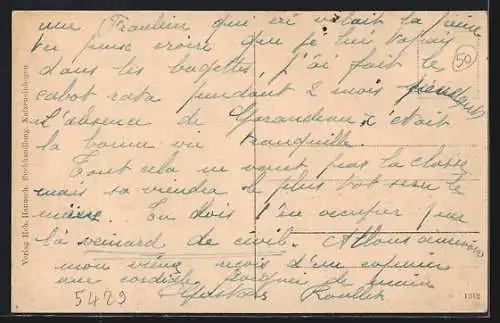 une Fraulein qui en valait la peine
tu peux croire que je lui tapais
dans les baguettes j'ai fait le
cabot rata pendant 2 mois pendant
l'absence de Girandeau c'était
la bonne vie tranquille.
Tout cela ne vaut pas la classe
mais sa viendra le plus tot sera le
mieux. Tu dois t'en occuper
là veinard de civil. Allons
mon vieux reçois d'un copain
une cordiale poignée de main
Roullet
50
5429
Verlag Hch. Buchhandlung, Katzenelnbogen